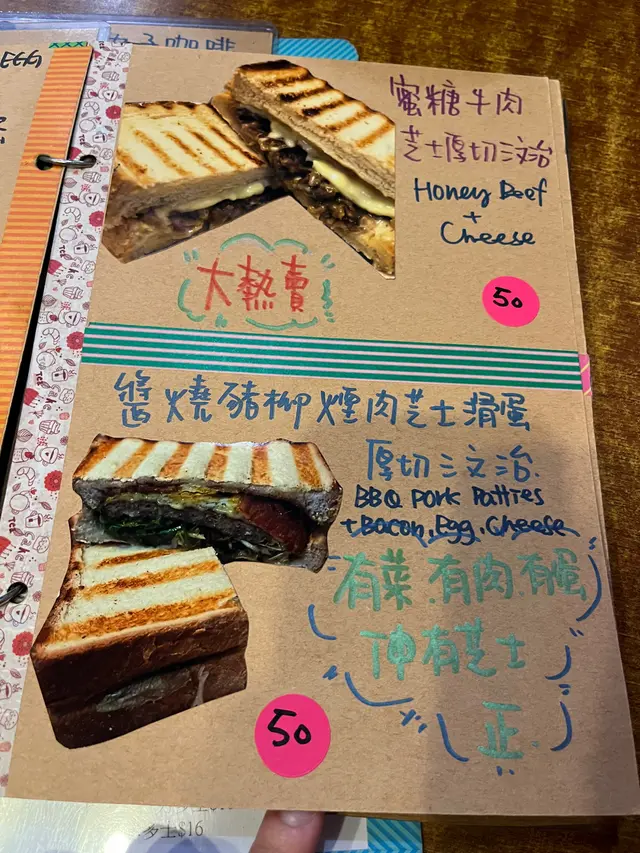 蜜糖牛肉
芝士厚切三文治
Honey Beef
+
Cheese
大熱賣
50
醬燒豬柳煙肉芝士滑蛋
厚切三文治.
BBQ Pork Patties
+Bacon, Egg, Cheese
有菜.有肉.有蛋
仲有芝士
正.
50
多士$16